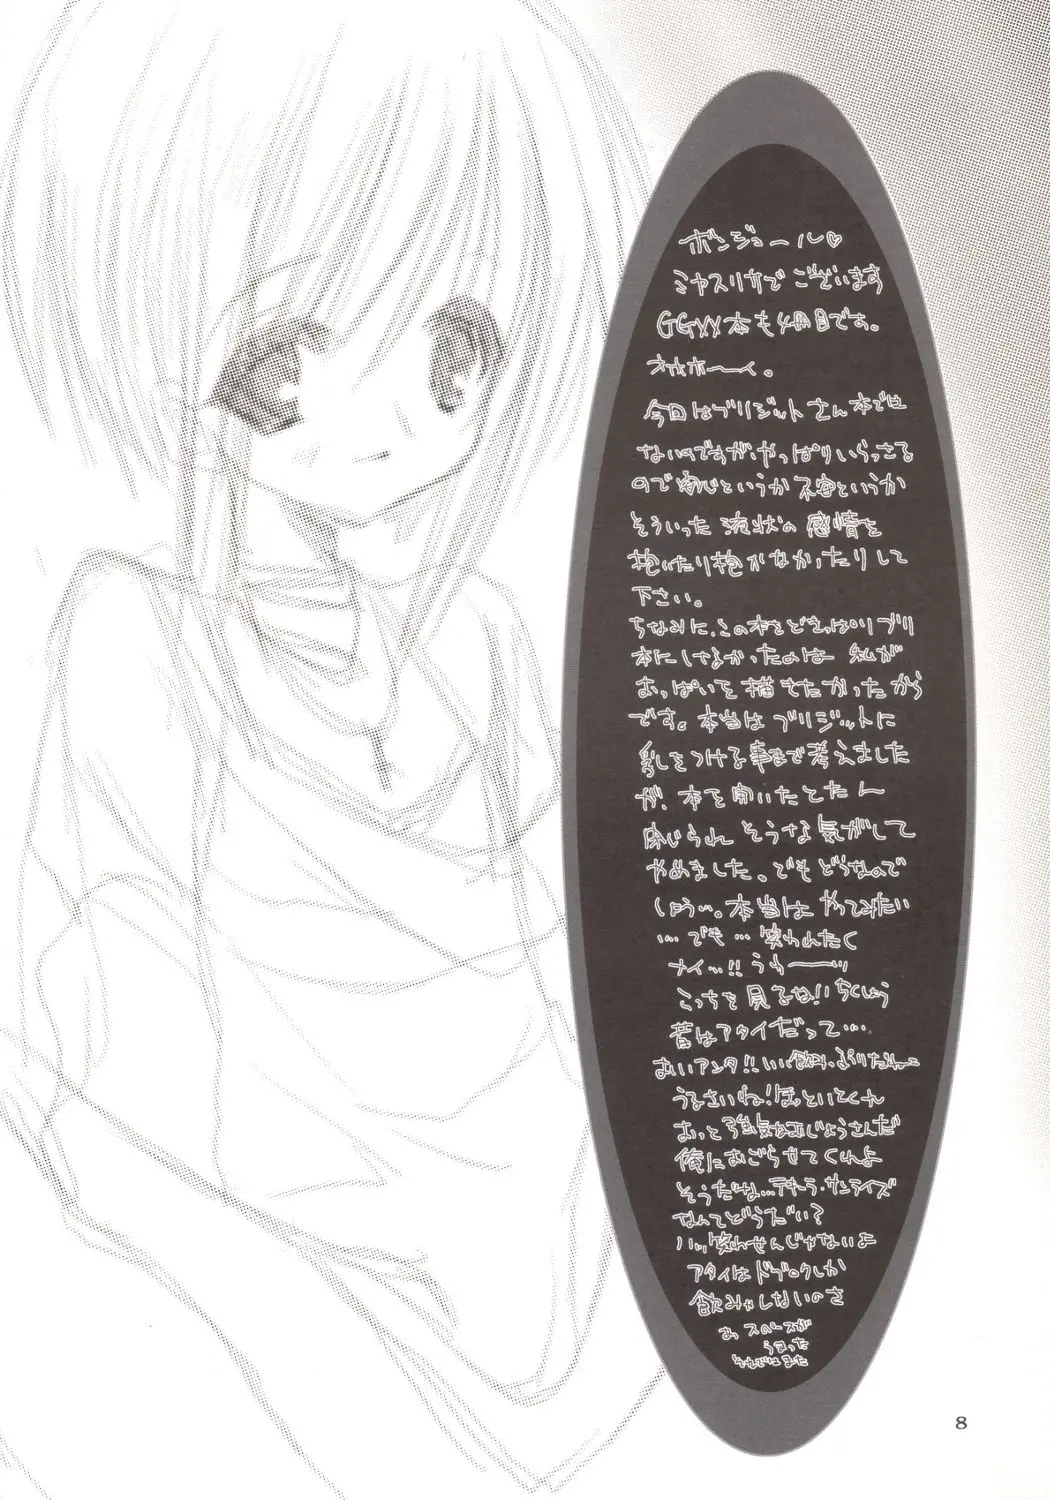 ボンジョール♡
ミヤスリサでございます
GGXX本も4冊目です。
オホホーイ。
今回はブリジットさん本では
ないのですが、やっぱりいらっさる
ので安心というか不安というか
そういった液状の感情を
抱いたり抱かなかったりして
下さい。
ちなみに、この本をどきっぱりブリ
本にしなかったのは 私が
おっぱいを描きたかったから
です。本当はブリジットに
乳をつける事まで考えました
が、本を開いたとたん
閉じられそうな気がして
やめました。でもどうなので
しょう…。本当はやってみたい
…でも…笑われたく
ナイッ!!うわーーッ
こっちを見るね!!ちくしょう
昔はアタイだって…。
おいアンタ!!いい飲みっぷりだねェ
うるさいね!ほっといとくれ
おっと強気なおじょうさんだ
俺におごらせてくれよ
そうだな…テキーラ・サンライズ
なんてどうだい?
ハッ、笑わせんじゃないよ
アタイはドブロクしか
飲みゃしないのさ
あ スペースが
うまった
それではまた
8